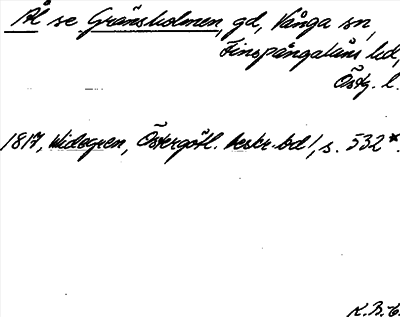 Ål se Gränsholmen, gd, Vånga sn,
Finspångaläns hd,
Östg. l.
1817, Widegren, Östergötl. beskr. bd 1, s. 532*.
K.B-č.